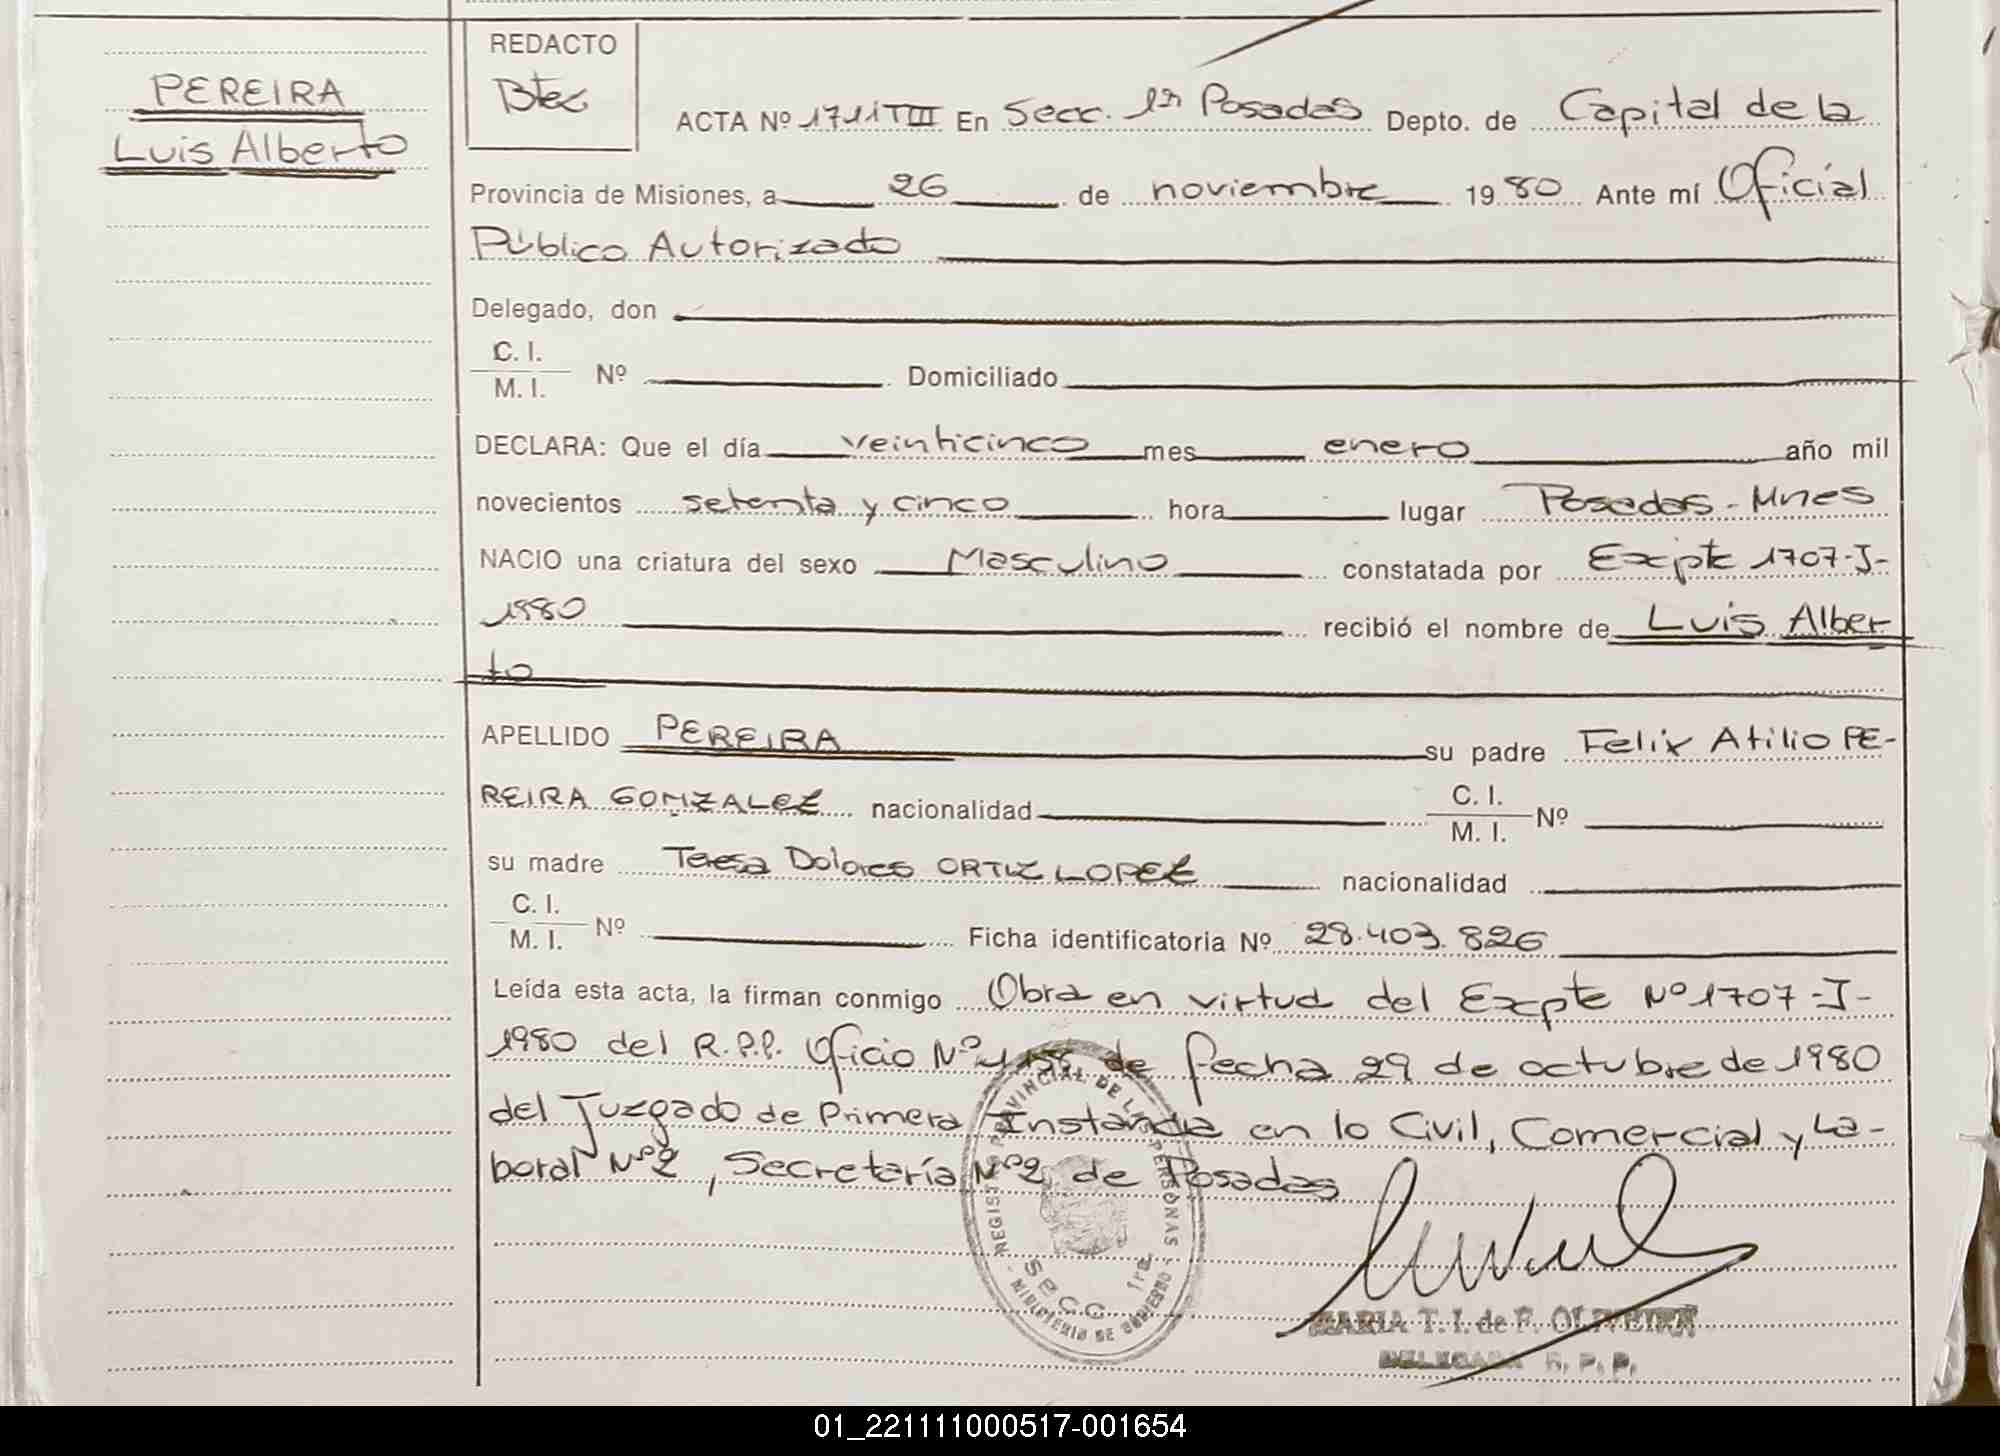 PEREIRA
Luis Alberto
REDACTO
ACTA Nº 1711 TIII En Secc. 1ra Posadas Depto. de Capital de la
Provincia de Misiones, a 26 de noviembre 1980 Ante mí Oficial
Público Autorizado
Delegado, don
C. I.
M. I. Nº Domiciliado
DECLARA: Que el día veinticinco mes enero año mil
novecientos setenta y cinco hora lugar Posadas - Mnes
NACIO una criatura del sexo Masculino constatada por Expte 1707-J-
1980 recibió el nombre de Luis Alber
to
APELLIDO PEREIRA su padre Felix Atilio PE-
REIRA GONZALEZ nacionalidad C. I. M. I. Nº
su madre Teresa Dolores ORTIZ LOPEZ nacionalidad
C. I.
M. I. Nº Ficha identificatoria Nº 28.403.826
Leída esta acta, la firman conmigo Obra en virtud del Expte Nº 1707-J-
1980 del R.P.P. Oficio Nº de fecha 29 de octubre de 1980
del Juzgado de Primera Instancia en lo Civil, Comercial y La-
boral Nº2, Secretaría Nº2 de Posadas
REGISTRO PROVINCIAL DE LAS PERSONAS
SECC 1ra.
MINISTERIO DE GOBIERNO
MARIA T. I. de F. OLIVEIRA
DELEGADA R. P. P.
01_221111000517-001654